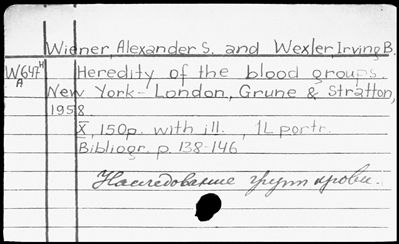 Wiener, Alexander S. and Wexler, Irving B.
W647H Heredity of the blood groups.
A
New York - London, Grune & Stratton,
1958
X, 150p. with ill. , 1L portr.
Bibliogr. p. 138-146
Наследование групп крови.